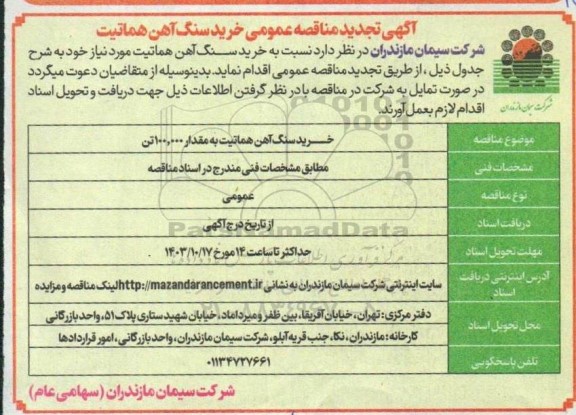 آگهی تجدید مناقصه عمومی خرید سنگ آهن هماتیت
شرکت سیمان مازندران در نظر دارد نسبت به خرید سنگ آهن هماتیت مورد نیاز خود به شرح
جدول ذیل، از طریق تجدید مناقصه عمومی اقدام نماید. بدینوسیله از متقاضیان دعوت میگردد
در صورت تمایل به شرکت در مناقصه با در نظر گرفتن اطلاعات ذیل جهت دریافت و تحویل اسناد
اقدام لازم بعمل آورند.
شرکت سیمان مازندران
موضوع مناقصه
خرید سنگ آهن هماتیت به مقدار ۱۰۰,۰۰۰ تن
مشخصات فنی
مطابق مشخصات فنی مندرج در اسناد مناقصه
نوع مناقصه
عمومی
دریافت اسناد
از تاریخ درج آگهی
مهلت تحویل اسناد
حداکثر تا ساعت ۱۴ مورخ ۱۴۰۳/۱۰/۱۷
آدرس اینترنتی دریافت اسناد
سایت اینترنتی شرکت سیمان مازندران به نشانی http://mazandarancement.ir لینک مناقصه و مزایده
محل تحویل اسناد
دفتر مرکزی: تهران، خیابان آفریقا، بین ظفر و میرداماد، خیابان شهید ستاری پلاک ۵۱، واحد بازرگانی
کارخانه: مازندران، نکا، جنب قریه آبلو، شرکت سیمان مازندران، واحد بازرگانی، امور قراردادها
تلفن پاسخگویی
۰۱۱۳۴۷۲۷۶۶۱
شرکت سیمان مازندران (سهامی عام)
ParsNamadData